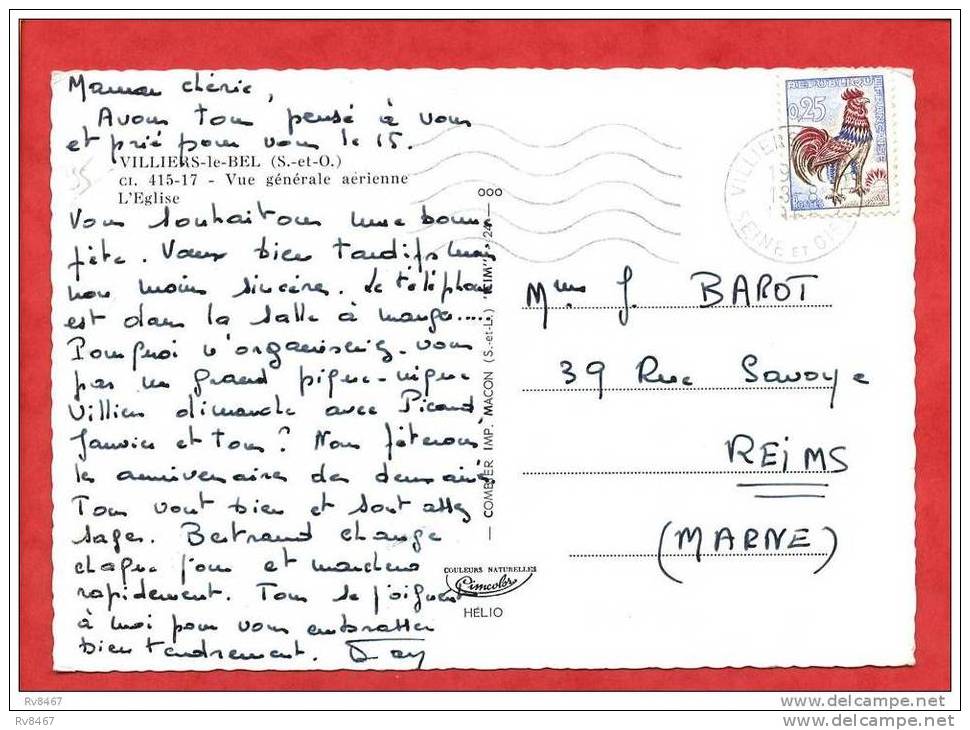 Maman chérie,
Avons tous pensé à vous
et prié pour vous le 15.
VILLIERS-le-BEL (S.-et-O.)
CI. 415-17 - Vue générale aérienne
L'Eglise
Vous souhaitons une bonne
fête. Vœux bien tardifs mais
non moins sincères. Le téléphone
est dans la salle à manger.....
Pourquoi n'organiseriez-vous
pas un grand pique-nique
Villiers dimanche avec Picard
Janvier et tous? Nous fêterons
les anniversaires des
Tous vont bien et sont assez
sages. Bertrand change
chaque jour et marchera
rapidement. Tous se joignent
à moi pour vous embrasser
bien tendrement.
COMBIER IMP. MACON (S.-et-L.) "CIM"
COULEURS NATURELLES
Cimcolor
HÉLIO
OOO
REPUBLIQUE FRANÇAISE
0,25
Postes
VILLIERS
SEINE ET OISE
Mme J. BAROT
39 Rue Savoye
REIMS
(MARNE)
35
Rv8467
Rv8467
www.delcampe.net
www.delcampe.net